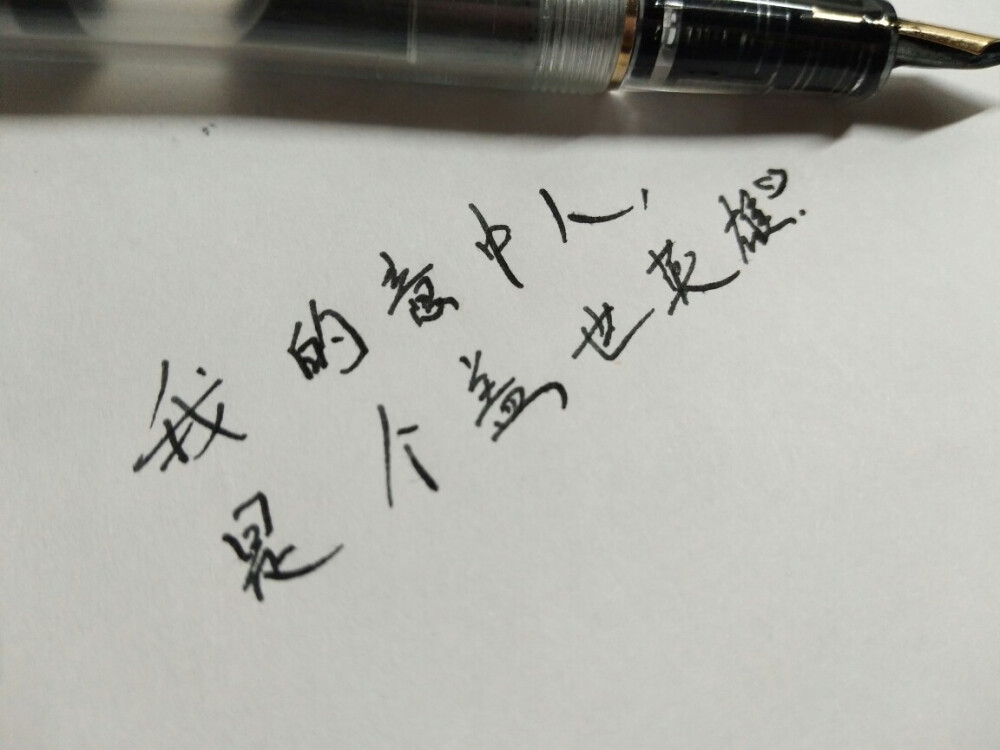 我的意中人,
是个盖世英雄.